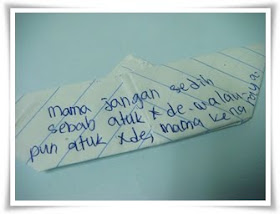 mama jangan sedih
sebab atuk x de. walau
pun atuk xde, mama keng
raya.